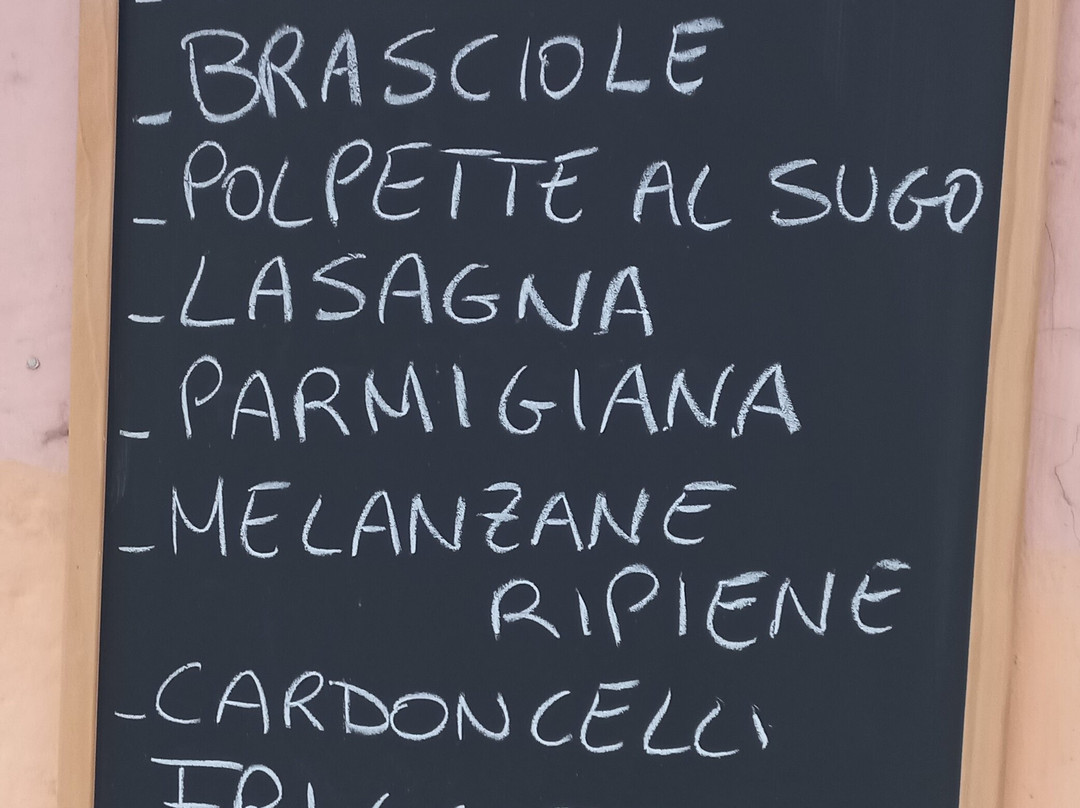 - BRASCIOLE
- POLPETTE AL SUGO
- LASAGNA
- PARMIGIANA
- MELANZANE
RIPIENE
- CARDONCELLI